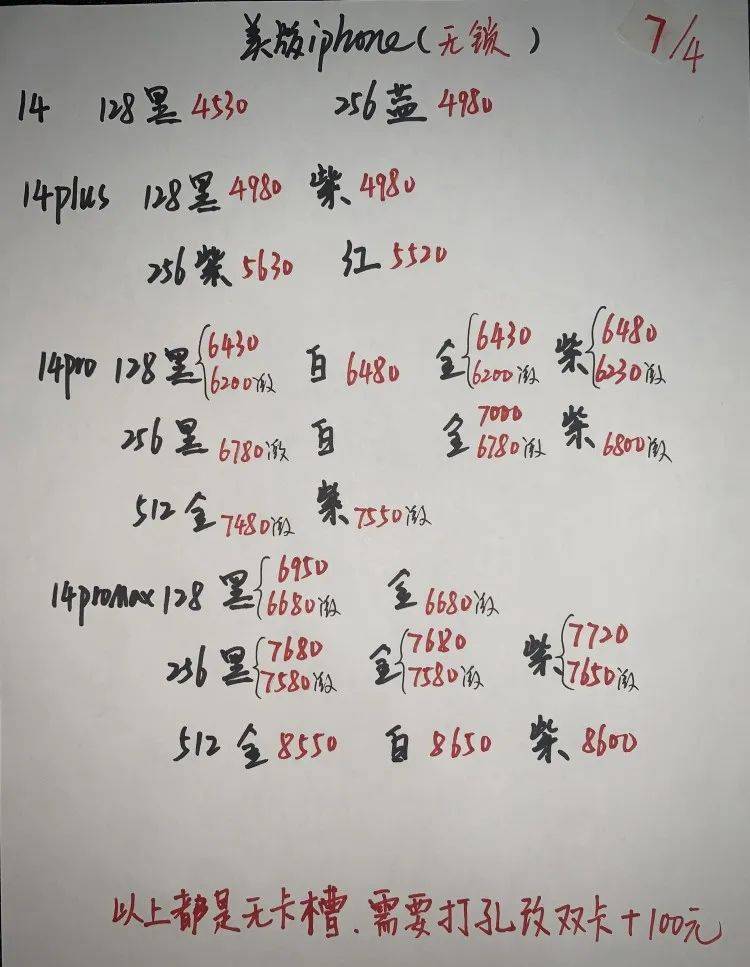 美版iphone(无锁) 7/4
14 128黑4530 256蓝4980
14plus 128黑4980 紫4980
256紫5630 红5520
14pro 128黑{6430 6200激 白6480 金{6430 6200激 紫{6480 6230激
256黑6780激 白 金7000 6780激 紫6800激
512金7480激 紫7550激
14promax128 黑{6950 6680激 金6680激
256黑{7680 7580激 金{7680 7580激 紫{7720 7650激
512金8550 白8650 紫8600
以上都是无卡槽.需要打孔改双卡+100元